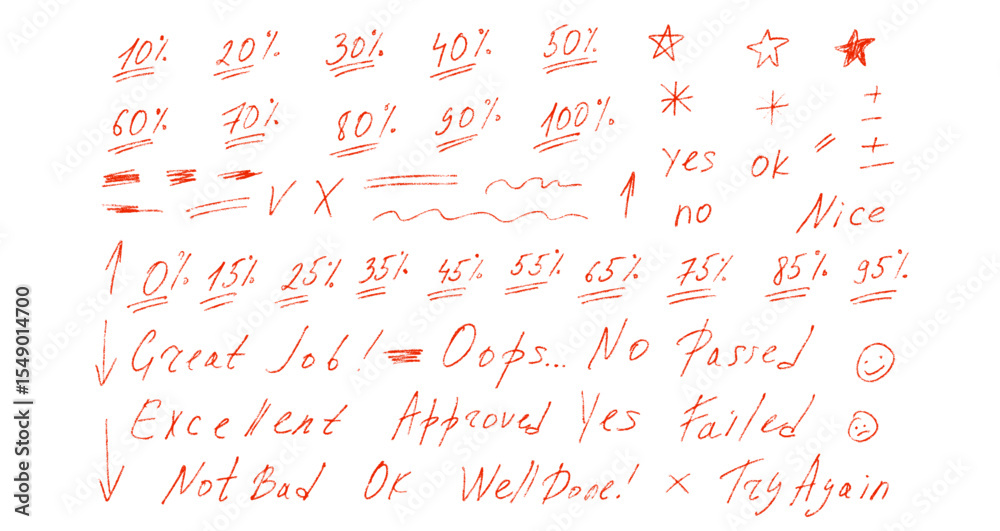 10% 20% 30% 40% 50%
60% 70% 80% 90% 100%
yes ok
V X no Nice
0% 15% 25% 35% 45% 55% 65% 75% 85% 95%
Great Job! Oops... No Passed
Excellent Approved Yes Failed
Not Bad OK Well Done! × Try Again
Adobe Stock | #1549014700